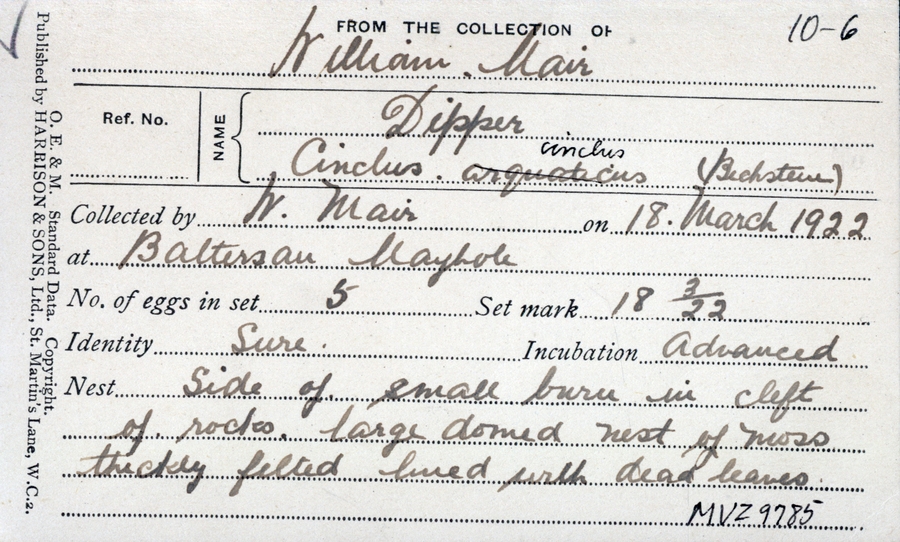 10-6
FROM THE COLLECTION OF
William Mair
Ref. No.
NAME
Dipper
cinclus
Cinclus. aquaticus (Bechstein)
Collected by W. Mair on 18. March 1922
at Baltersan Maybole
No. of eggs in set 5 Set mark 18 3/22
Identity Sure. Incubation Advanced
Nest Side of small burn in cleft
of rocks. large domed nest of moss
thickly felted lined with dead leaves.
MVZ 9785
O. E. & M. Standard Data. Copyright.
Published by HARRISON & SONS, Ltd., St. Martin's Lane, W.C.2.